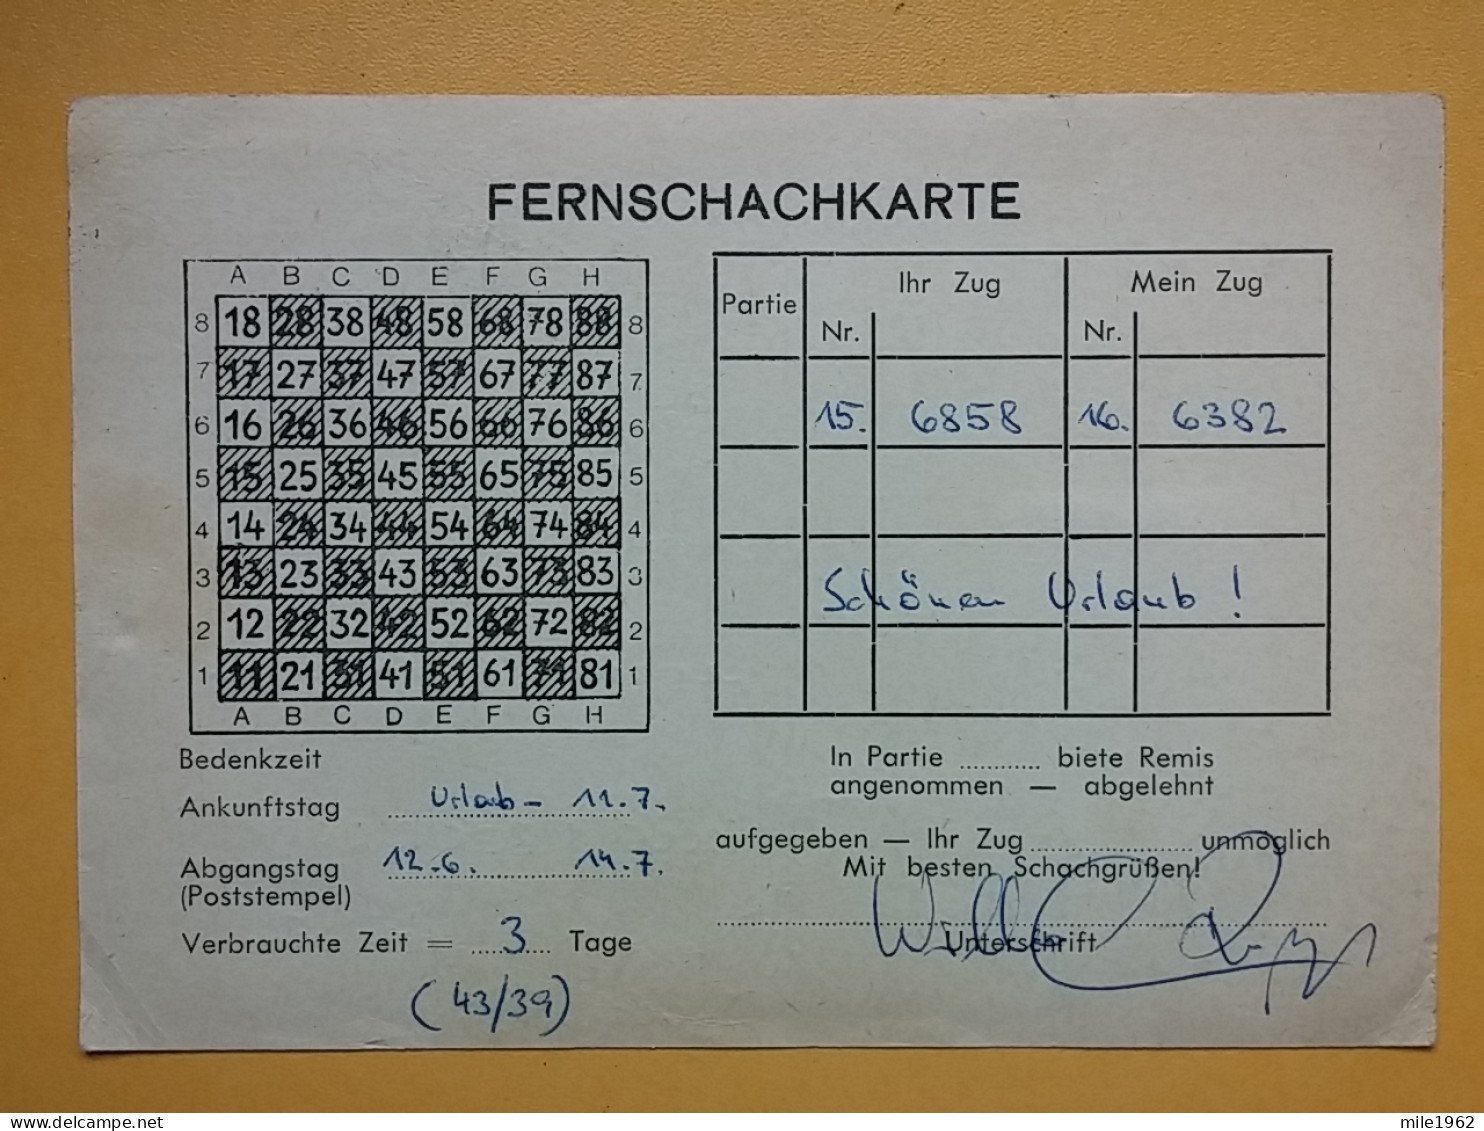 FERNSCHACHKARTE
A B C D E F G H
8 18 28 38 48 58 68 78 88 8
7 17 27 37 47 57 67 77 87 7
6 16 26 36 46 56 66 76 86 6
5 15 25 35 45 55 65 75 85 5
4 14 24 34 44 54 64 74 84 4
3 13 23 33 43 53 63 73 83 3
2 12 22 32 42 52 62 72 82 2
1 11 21 31 41 51 61 71 81 1
A B C D E F G H
Partie Ihr Zug Mein Zug
Nr. Nr.
15. 6858 16. 6382
Schönen Urlaub!
Bedenkzeit
Ankunftstag Urlaub - 11.7.
Abgangstag 12.6. 14.7.
(Poststempel)
Verbrauchte Zeit = 3 Tage
(43/39)
In Partie ............ biete Remis
angenommen — abgelehnt
aufgegeben — Ihr Zug ........................ unmöglich
Mit besten Schachgrüßen!
Unterschrift
mile1962